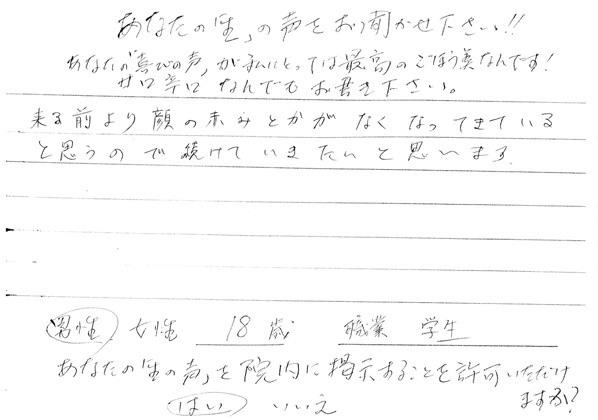 あなたの「生」の声をお聞かせ下さい!!
あなたの「喜びの声」が私にとっては最高のごほう美なんです!
甘口辛口 なんでもお書き下さい。
来る前より顔の赤みとかがなくなってきている
と思うので続けていきたいと思います
男性 女性 18歳 職業 学生
あなたの「生の声」を院内に掲示することを許可いただけ
ますか?
はい いいえ